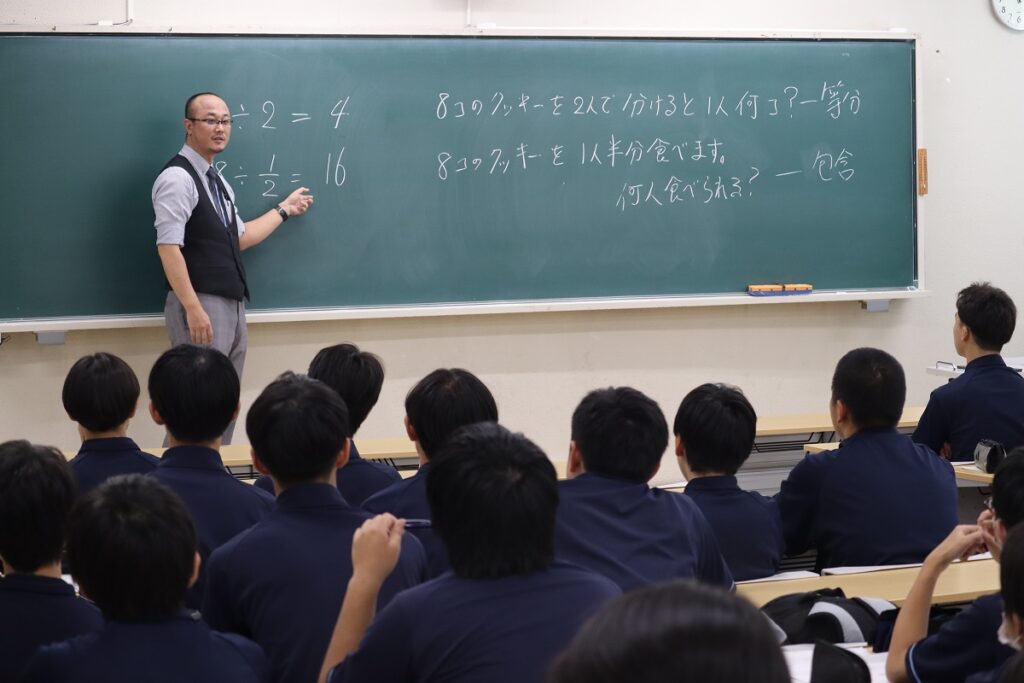 ÷ 2 = 4
8コのクッキーを2人で分けると1人何コ?ー等分
8 ÷ 1/2 = 16
8コのクッキーを1人半分食べます。
何人食べられる? ー 包含